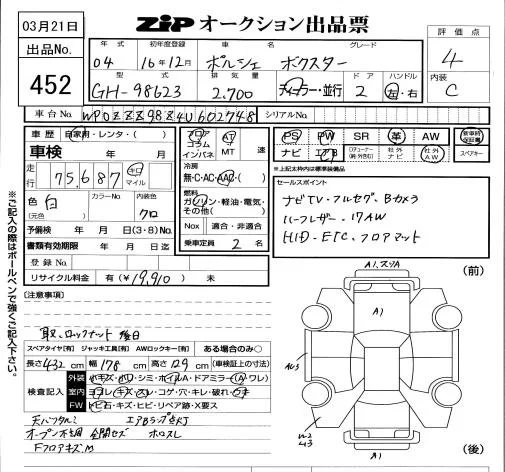 03月21日
ZiP オークション出品票
評価点
4
内装
C
出品No.
452
年式 初年度登録 車名 グレード
04 16年12月 ポルシェ ボクスター
型式 排気量 ドア ハンドル
GH-98623 2,700 ディーラー・並行 2 左・右
車台No. WP0ZZZ98Z4U602748 シリアルNo.
車歴 自家用・レンタ・( )
車検 年 月
走行 75,687 キロ マイル
色 白 (元色) カラーNo 内装色 クロ
予備検 年 月 日(3・8)No.
書類有効期限 年 月 日迄
登録No.
リサイクル料金 有(¥19,910)・未
フロア コラム インパネ AT MT 速
冷房
無・C・AC・AAC・( )
燃料
ガソリン・軽油・電気・その他( )
Nox 適合・非適合
乗車定員 2 名
PS PW SR 革 AW 新車時保証書
ナビ エアB 社外ナビ 社外AW スペアキー
※上記太枠内は標準装備品
セールスポイント
ナビTV・フルセグ・Bカメラ
ハーフレザー・17AW
HID・ETC・フロアマット
※ご記入の際はボールペンで強くご記入下さい。
[注意事項]
取、ロックナット後日
スペアタイヤ[有] ジャッキ工具[有] AWロックキー[有] ある場合のみ○
長さ432cm 幅178cm 高さ129cm (車検証上の寸法)
検査記入
外装 キズ・凹・シミ・ホイルA・ドアミラー(A・ワレ)
室内 ヨゴレ・キズ・スレ・コゲ・穴・キレ・破れ・
FW トビ石・キズ・ヒビ・リペア跡・X要ス
エアBランプ点灯
オープン不良
FフロアキズM
(前)
A1
A1
A1
(後)